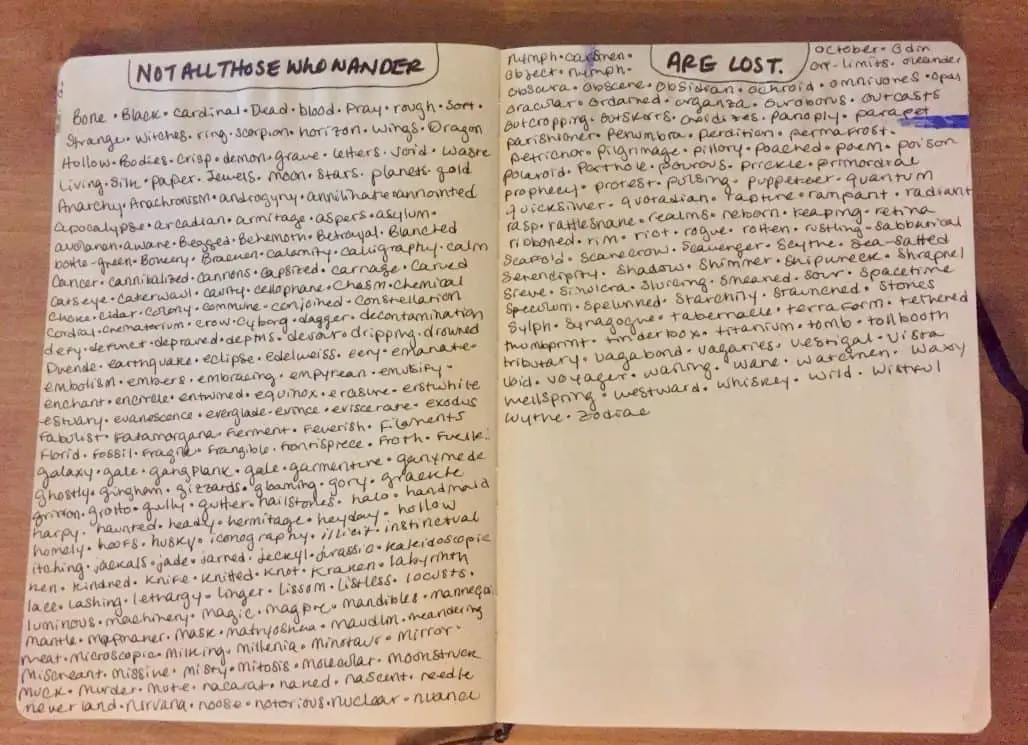 NOT ALL THOSE WHO WANDER
Bone • Black • cardinal • Dead • blood • Pray • rough • Sort •
Strange • witches • ring • scorpion • horizon • wings • Dragon
Hollow • Bodies • crisp • demon • grave • letters • void • waste
Living • Silk • paper • Jewels • moon • stars • planets • gold
Anarchy • Anachronism • androgyny • annihilate • annointed
apocalypse • arcadian • armitage • aspers • asylum •
aware • Begged • Behemoth • Betrayal • Blanched
bottle-green • Bowery • Bracken • calamity • calligraphy • calm
Cancer • cannibalized • cannons • capsized • carnage • carved
catseye • caterwaul • cavity • cellophane • chasm • chemical
choke • cidar • colony • commune • conjoined • constellation
cordial • crematorium • crow • cyborg • dagger • decontamination
defy • defunct • depraved • depths • devour • dripping • drowned
Duende • earthquake • eclipse • Edelweiss • eery • emanate •
embolism • embers • embracing • empyrean • emulsify •
enchant • encircle • entwined • equinox • erasure • erstwhile
estuary • evanescence • everglade • evince • eviscerate • exodus
Fabulist • Fatamorgana • Ferment • Feverish • Filaments
Florid • Fossil • Fragile • Frangible • Frontispiece • Froth •
galaxy • gale • gangplank • gale • garmenture • ganymede
ghostly • gingham • gizzards • gloaming • gory •
griffon • grotto • gully • gutter • hailstones • halo • handmaid
harpy • haunted • heady • hermitage • heyday • hollow
homely • hoofs • husky • iconography • illicit • instinctual
itching • jackals • jade • jarred • jeckyl • jurassic • kaleidoscopic
ken • kindred • knife • knitted • knot • kraken • labyrinth
lace • lashing • lethargy • linger • lissom • listless • locusts •
luminous • machinery • magic • magpie • mandibles •
mantle • mapmaker • mask • matryoshka • maudlin • meandering
meat • microscopic • milking • millenia • minotaur • mirror •
miscreant • missive • misty • mitosis • molecular • moonstruck
muck • murder • mute • nacarat • naked • nascent • needle
never land • nirvana • noose • notorious • nuclear • nuance
ARE LOST.
nymph • • October • Odin
object • nymph • off-limits • oleander
obscura • obscene • obsidian • ochroid • omnivores • opas
oracular • ordained • organza • ouroborus • outcasts
outcropping • outskirts • • panoply • parapet
parishioner • penumbra • perdition • permafrost •
petrichor • pilgrimage • pillory • poached • poem • poison
polaroid • porthole • porous • prickle • primordial
prophecy • protest • pulsing • puppeteer • quantum
quicksilver • quotadian • rapture • rampant • radiant
rasp • rattlesnake • realms • reborn • reaping • retina
ribboned • rim • riot • rogue • rotten • rustling • sabbatical
scaffold • scarecrow • scavenger • scythe • sea-salted
serendipity • shadow • shimmer • shipwreck • shrapnel
sieve • simulcra • slurring • smeared • sour • spacetime
speculum • spelunked • starchily • staunched • stones
sylph • synagogue • tabernacle • terraform • tethered
thumbprint • tinderbox • titanium • tomb • tollbooth
tributary • vagabond • vagaries • vestigal • vista
void • voyager • wailing • wane • watchmen • waxy
wellspring • westward • whiskey • wild • wistful
wythe • zodiac